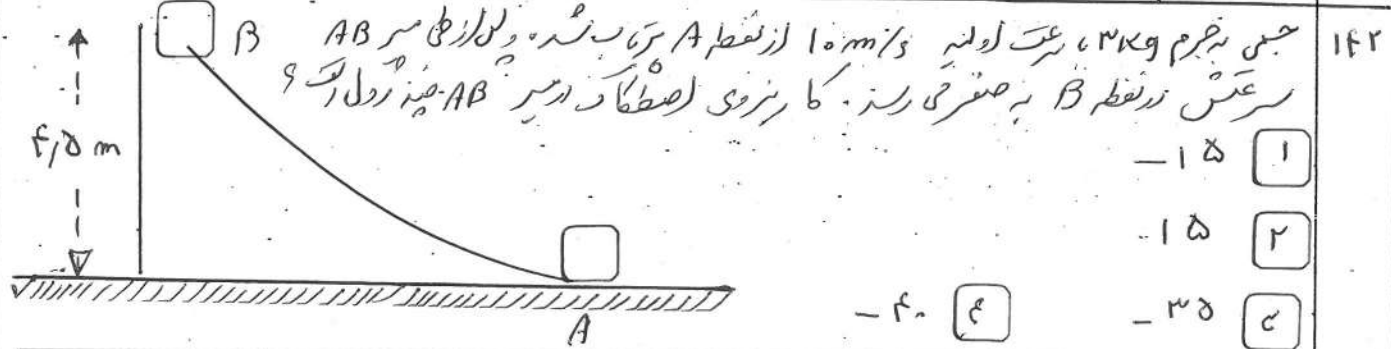 ۱۴۲
جسمی به جرم ۳kg، سرعت اولیه ۱۰ m/s از نقطه A پرتاب شده و پس از طی مسیر AB
سرعتش در نقطه B به صفر می رسد. کار نیروی اصطکاک در مسیر AB چند ژول است؟
۱ -۱۵
۲ ۱۵
۳ -۳۵
۴ -۴۰
B
۴,۵ m
A